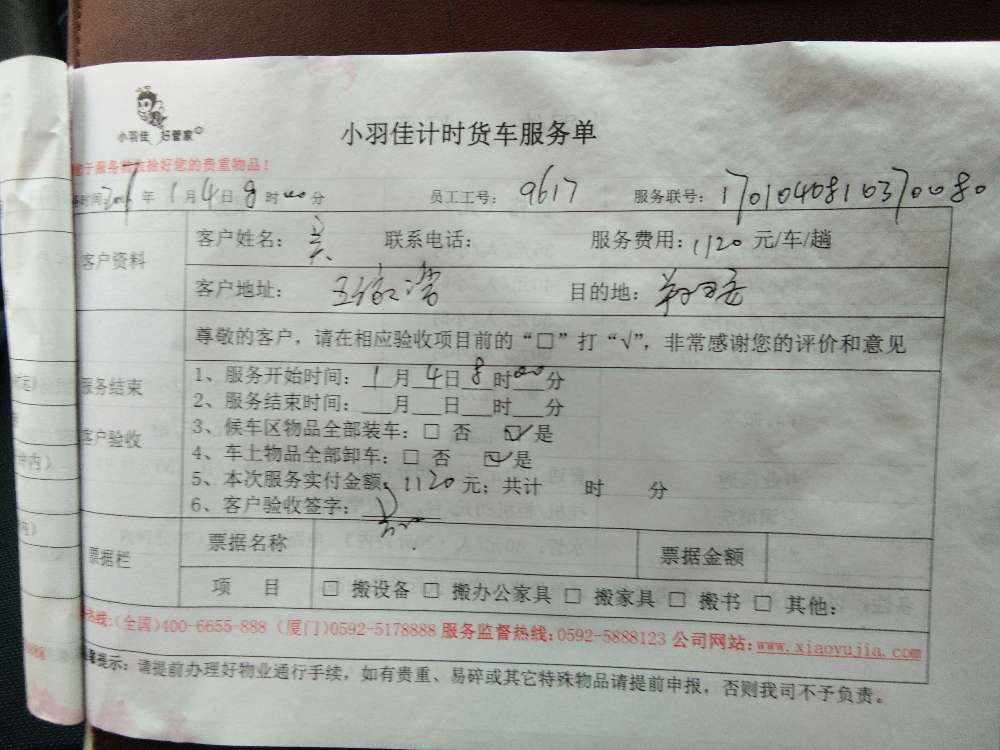 小羽佳 好管家
小羽佳计时货车服务单
于服务前收捡好您的贵重物品！
时间: 年 1月4日8时00分 员工工号: 9617 服务联号: 17010408103700080
客户资料
客户姓名: 吴 联系电话: 服务费用: 1120 元/车/趟
客户地址: 目的地:
尊敬的客户，请在相应验收项目前的“□”打“√”，非常感谢您的评价和意见
服务结束
客户验收
1、服务开始时间: 1月4日8时00分
2、服务结束时间: ___月___日___时___分
3、候车区物品全部装车: □ 否 ☑是
4、车上物品全部卸车: □ 否 ☑是
5、本次服务实付金额: 1120元; 共计 时 分
6、客户验收签字:
票据栏
票据名称 票据金额
项 目 □ 搬设备 □ 搬办公家具 □ 搬家具 □ 搬书 □ 其他:
热线:(全国)400-6655-888 (厦门)0592-5178888 服务监督热线:0592-5888123 公司网站:www.xiaoyujia.com
提示: 请提前办理好物业通行手续，如有贵重、易碎或其它特殊物品请提前申报，否则我司不予负责。